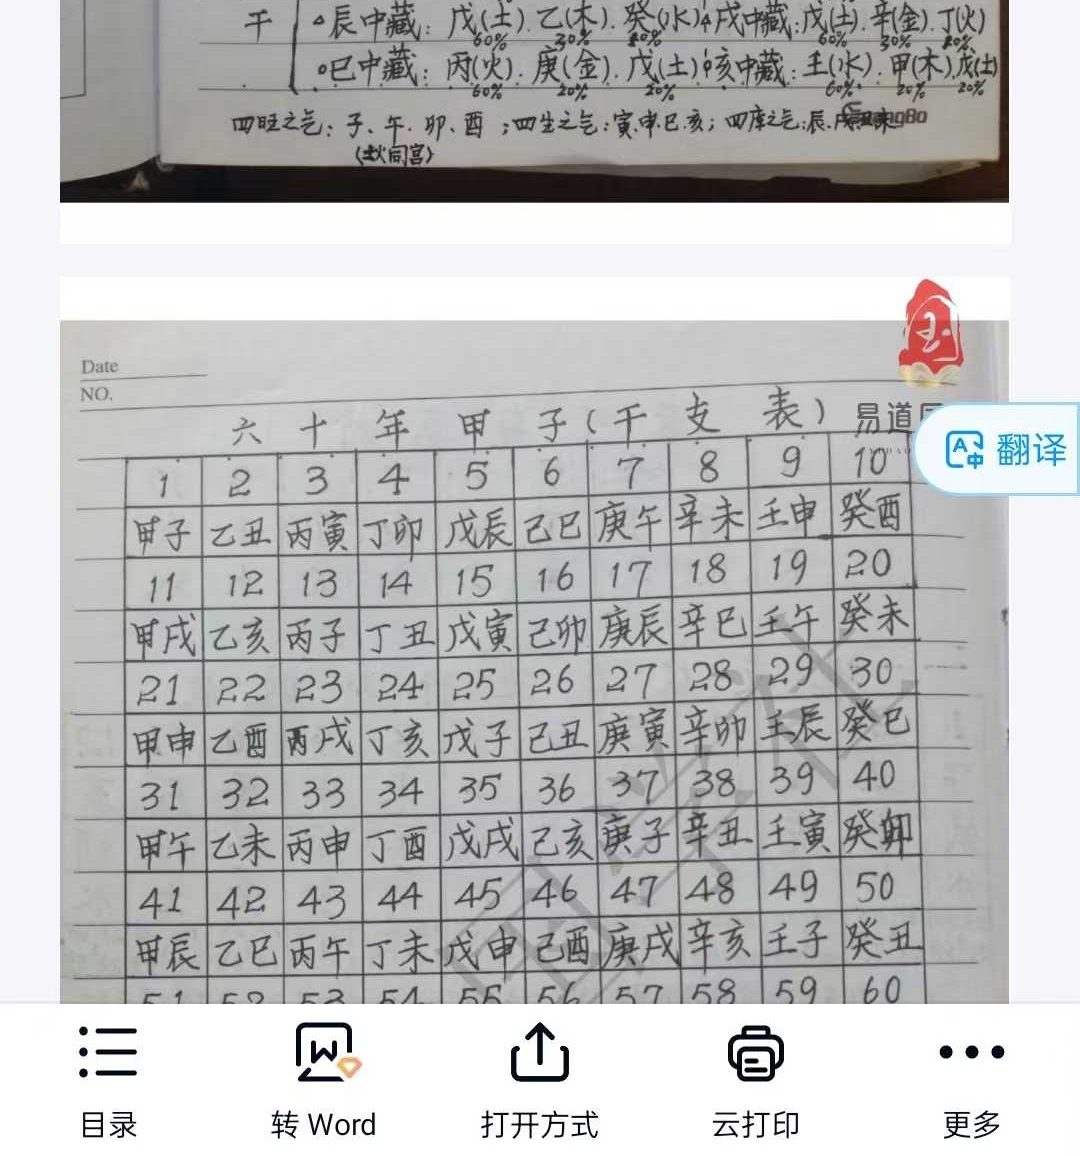 干 辰中藏：戊(土).乙(木).癸(水) 戌中藏：戊(土).辛(金).丁(火)
60% 30% 60% 30%
巳中藏：丙(火).庚(金).戊(土) 亥中藏：壬(水).甲(木).戊(土)
60% 20% 20% 60% 20% 20%
四旺之气：子、午.卯、酉；四生之气：寅.申.巳.亥；四库之气：辰.
(土火同宫)
Date
NO.
六十年甲子(干支表) 易道
翻译
1 2 3 4 5 6 7 8 9 10
甲子 乙丑 丙寅 丁卯 戊辰 己巳 庚午 辛未 壬申 癸酉
11 12 13 14 15 16 17 18 19 20
甲戌 乙亥 丙子 丁丑 戊寅 己卯 庚辰 辛巳 壬午 癸未
21 22 23 24 25 26 27 28 29 30
甲申 乙酉 丙戌 丁亥 戊子 己丑 庚寅 辛卯 壬辰 癸巳
31 32 33 34 35 36 37 38 39 40
甲午 乙未 丙申 丁酉 戊戌 己亥 庚子 辛丑 壬寅 癸卯
41 42 43 44 45 46 47 48 49 50
甲辰 乙巳 丙午 丁未 戊申 己酉 庚戌 辛亥 壬子 癸丑
51 52 53 54 55 56 57 58 59 60
目录 转 Word 打开方式 云打印 更多